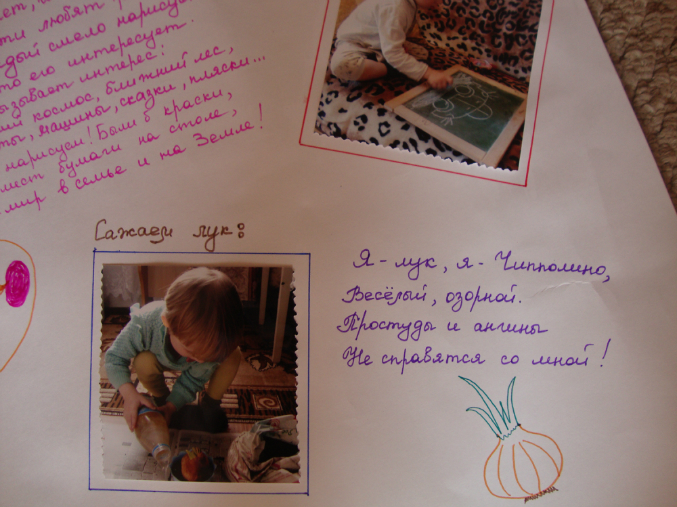 ти любят
дый смело нарисует
то его интересует.
ызывает интерес:
ий космос, ближний лес,
ты, машины, сказки, пляски...
нарисуем! Были б краски,
мест бумаги на столе,
мир в семье и на Земле!
Сажаем лук:
Я - лук, я - Чипполино,
Весёлый, озорной.
Простуды и ангины
Не справятся со мной!